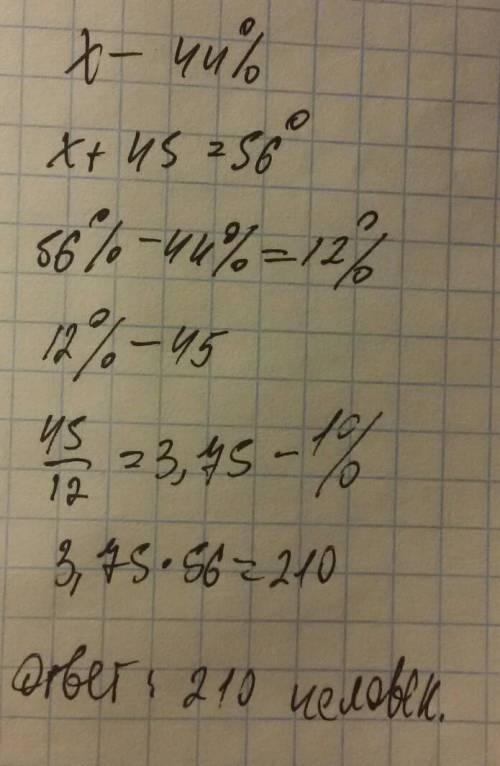 x – 44%
x + 45 = 56%
56% – 44% = 12%
12% – 45
45/12 = 3,75 – 1%
3,75 · 56 = 210
Ответ: 210 человек.